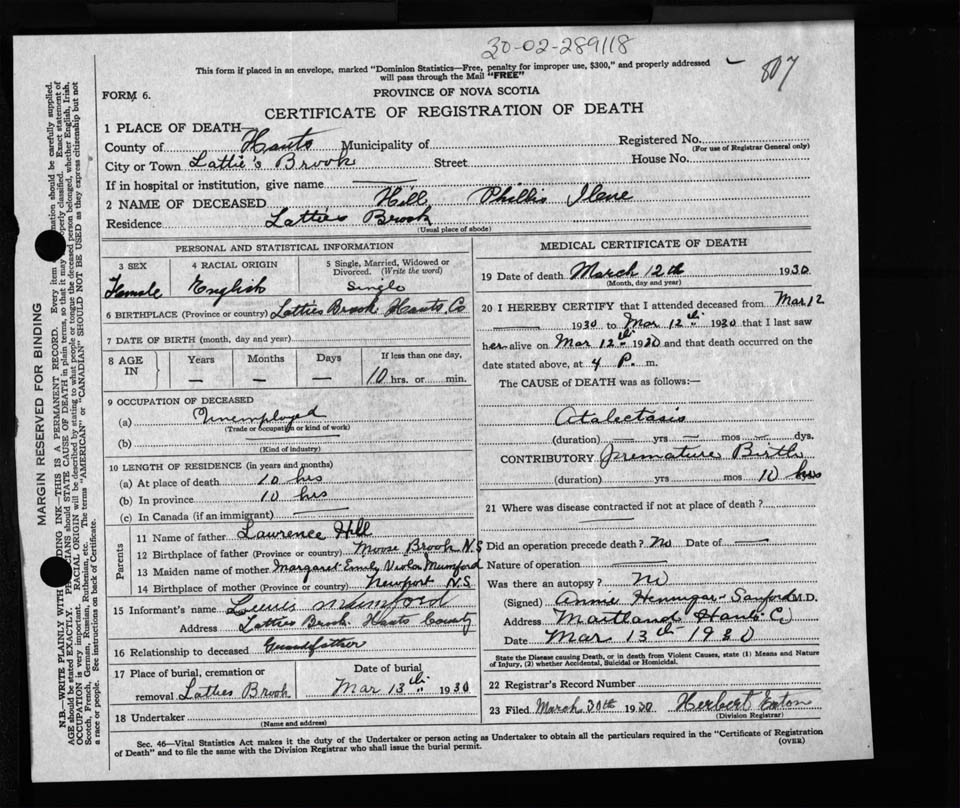 30-02-289118
807
This form if placed in an envelope, marked "Dominion Statistics—Free, penalty for improper use, $300," and properly addressed
will pass through the Mail "FREE"
FORM 6.
PROVINCE OF NOVA SCOTIA
CERTIFICATE OF REGISTRATION OF DEATH
1 PLACE OF DEATH—
County of Hants Municipality of Registered No.
(For use of Registrar General only)
City or Town Lattie's Brook Street House No.
If in hospital or institution, give name
2 NAME OF DECEASED Hill Phillis Ilene
Residence Latties Brook
(Usual place of abode)
PERSONAL AND STATISTICAL INFORMATION
3 SEX 4 RACIAL ORIGIN 5 Single, Married, Widowed or
Divorced. (Write the word)
Female English Single
6 BIRTHPLACE (Province or country) Latties Brook Hants Co
7 DATE OF BIRTH (month, day and year)
8 AGE IN Years Months Days If less than one day,
— — — 10 hrs. or min.
9 OCCUPATION OF DECEASED
(a) Unemployed
(Trade or occupation or kind of work)
(b)
(Kind of industry)
10 LENGTH OF RESIDENCE (in years and months)
(a) At place of death 10 hrs
(b) In province 10 hrs
(c) In Canada (if an immigrant)
Parents
11 Name of father Lawrence Hill
12 Birthplace of father (Province or country) Moose Brook N.S
13 Maiden name of mother Margaret Emily Viola Mumford
14 Birthplace of mother (Province or country) Newport N.S.
15 Informant's name Mumford
Address Latties Brook Hants County
16 Relationship to deceased Grandfather
17 Place of burial, cremation or Date of burial
removal Latties Brook Mar 13th 1930
18 Undertaker
(Name and address)
MEDICAL CERTIFICATE OF DEATH
19 Date of death March 12th 1930
(Month, day and year)
20 I HEREBY CERTIFY that I attended deceased from Mar 12
1930 to Mar 12th 1930 that I last saw
her alive on Mar 12th 1930 and that death occurred on the
date stated above, at 4 P. m.
The CAUSE of DEATH was as follows:—
Atalectasis
(duration) — yrs — mos — dys.
CONTRIBUTORY Premature Birth
(duration) yrs mos 10 hrs
21 Where was disease contracted if not at place of death?
Did an operation precede death? No Date of —
Nature of operation —
Was there an autopsy? No
(Signed) Annie Hennigar-Sanford M.D.
Address Maitland Hants Co
Date Mar 13th 1930
State the Disease causing Death, or in death from Violent Causes, state (1) Means and Nature
of Injury, (2) whether Accidental, Suicidal or Homicidal.
22 Registrar's Record Number
23 Filed March 30th 1930 Herbert Eaton
(Division Registrar)
Sec. 46—Vital Statistics Act makes it the duty of the Undertaker or person acting as Undertaker to obtain all the particulars required in the "Certificate of Registration
of Death" and to file the same with the Division Registrar who shall issue the burial permit.
(OVER)
MARGIN RESERVED FOR BINDING
N.B.—WRITE PLAINLY WITH INK—THIS IS A PERMANENT RECORD. Every item should be carefully supplied.
AGE should be stated EXACTLY. should STATE CAUSE OF DEATH in plain terms, so that it may classified. Exact statement of
OCCUPATION is very important. RACIAL ORIGIN will be described by stating to what people or tongue the deceased person belonged, whether English, Irish,
Scotch, French, German, Russian, Ruthenian, etc. The terms "AMERICAN" or "CANADIAN" SHOULD NOT BE USED as they express citizenship but not
a race or people. See instructions on back of Certificate.